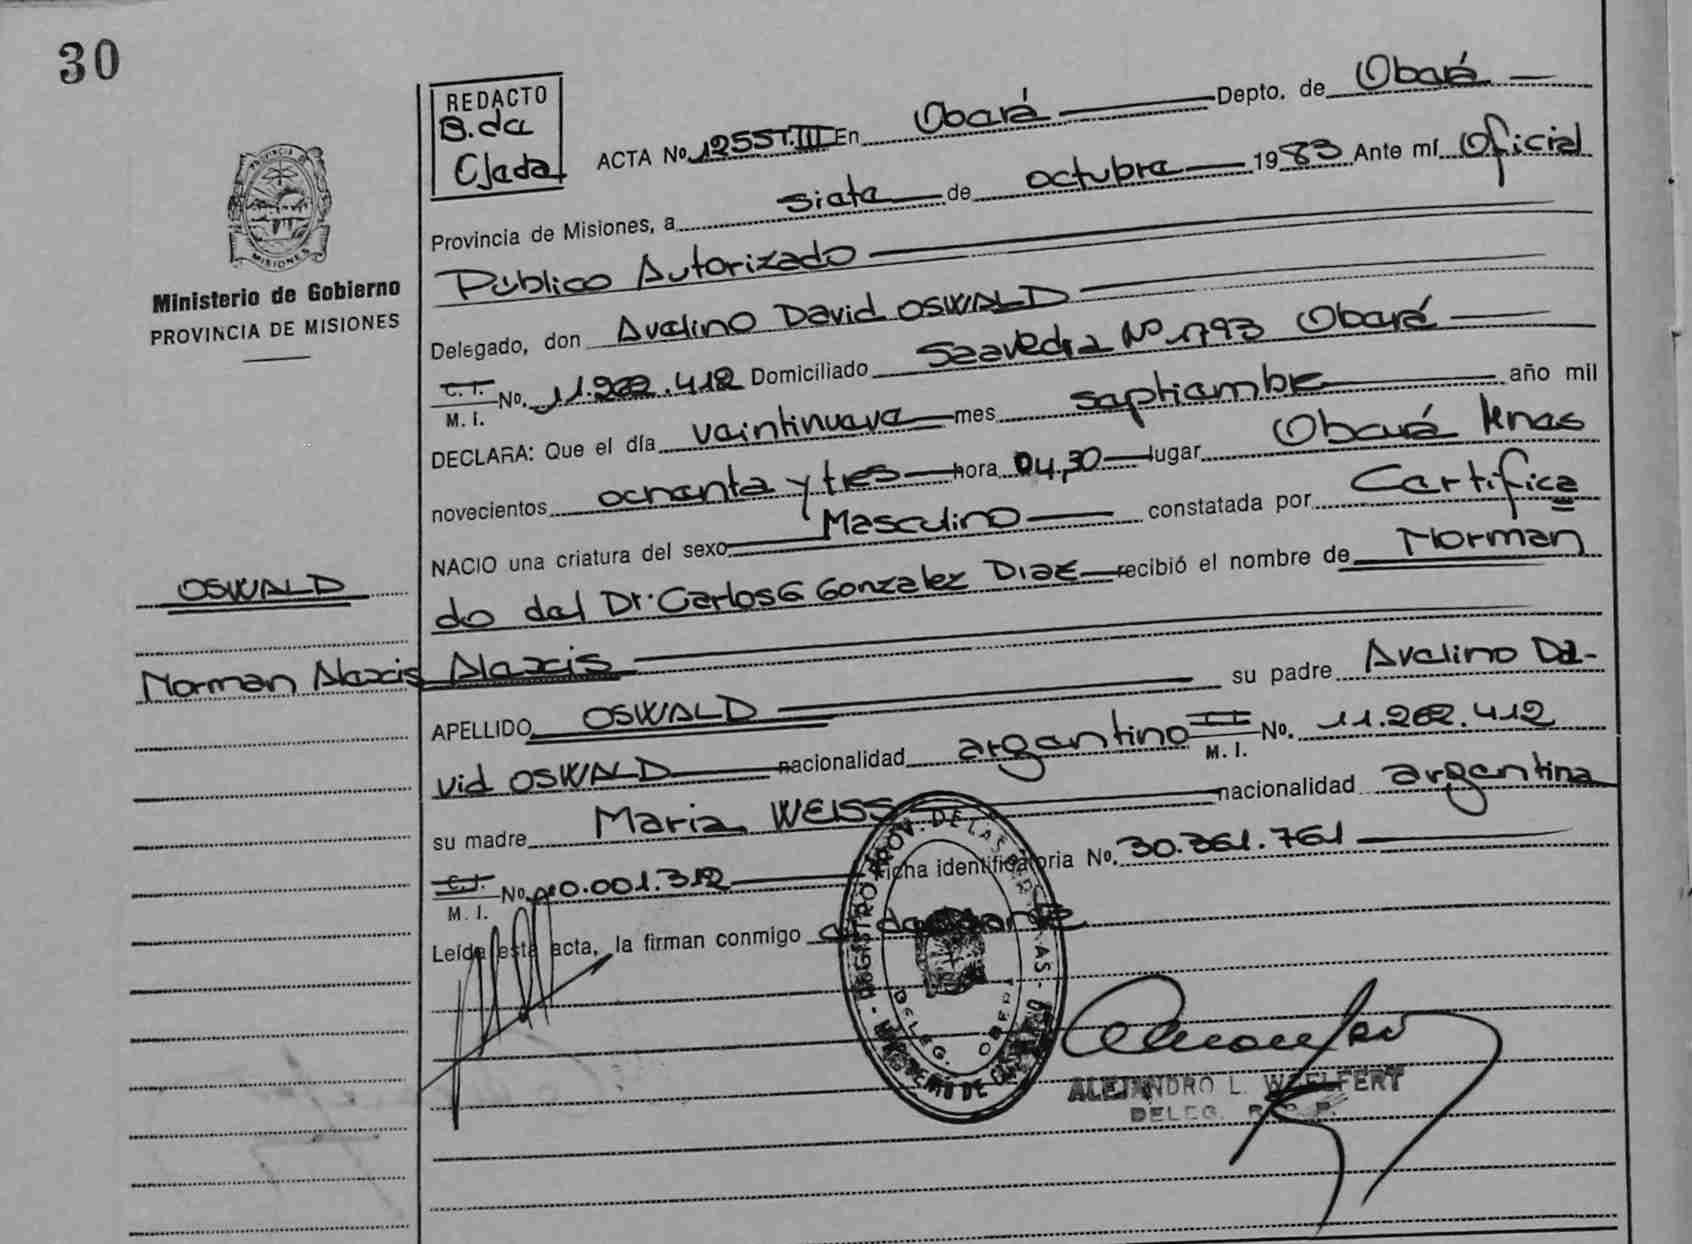 30
REDACTO
B. de
Cjada
PROVINCIA DE
MISIONES
Ministerio de Gobierno
PROVINCIA DE MISIONES
ACTA No. 1255T.III En Oberá Depto. de Oberá
Provincia de Misiones, a siete de octubre 1983 Ante mí Oficial
Público Autorizado
Delegado, don Avelino David OSWALD
C. I. M. I. No. 11.262.412 Domiciliado Saavedra Nº 1793 Oberá
DECLARA: Que el día veintinueve mes septiembre año mil
novecientos ochenta y tres hora 04,30 lugar Oberá Mnes
NACIO una criatura del sexo Masculino constatada por Certifica
do del Dr. Carlos G Gonzalez Diaz recibió el nombre de Norman
Alexis
OSWALD
Norman Alexis
APELLIDO OSWALD su padre Avelino Da-
vid OSWALD nacionalidad argentino C. I. M. I. No. 11.262.412
su madre Maria WEISS nacionalidad argentina
C. I. M. I. No. 10.001.312 Ficha identificatoria No. 30.361.761
Leída esta acta, la firman conmigo el
REGISTRO PROV. DE LAS PERSONAS - MINISTERIO DE
DELEG. OBERA
ALEJANDRO L. WOELFERT
DELEG. R. P. P.